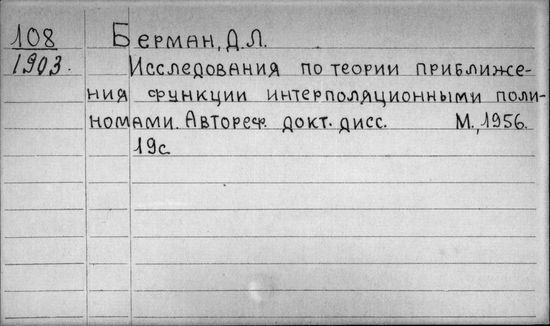 108 Берман, Д.Л.
1903. Исследования по теории приближе-
ния функции интерполяционными поли-
номами. Автореф. докт. дисс. М., 1956.
19с